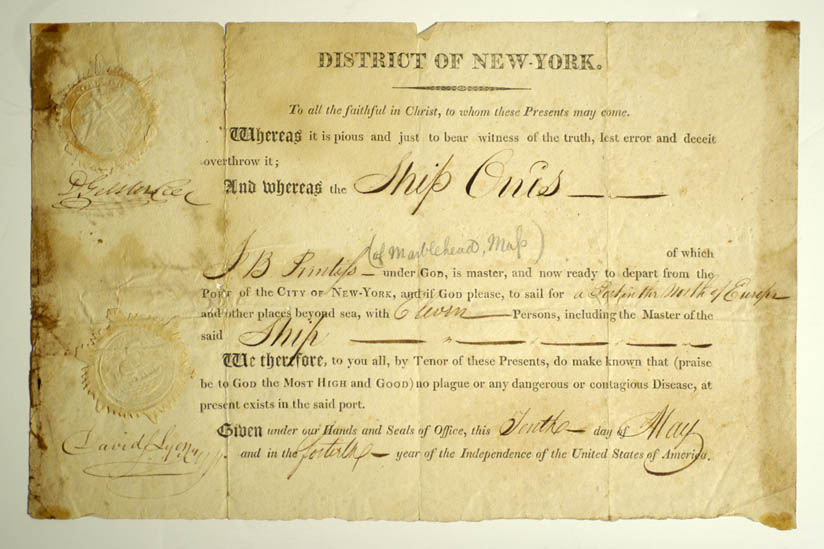 DISTRICT OF NEW-YORK.
To all the faithful in Christ, to whom these Presents may come.
Whereas it is pious and just to bear witness of the truth, lest error and deceit
overthrow it;
And whereas the Ship Onis
(of Marblehead, Mass)
of which
J B Prentiss under GOD, is master, and now ready to depart from the
PORT of the CITY OF NEW-YORK, and if GOD please, to sail for a Port in the North of Europe
and other places beyond sea, with Eleven Persons, including the Master of the
said Ship
We therefore, to you all, by Tenor of these Presents, do make known that (praise
be to GOD the MOST HIGH and GOOD) no plague or any dangerous or contagious Disease, at
present exists in the said port.
Given under our Hands and Seals of Office, this Tenth day of May
and in the fortieth year of the Independence of the United States of America.
David